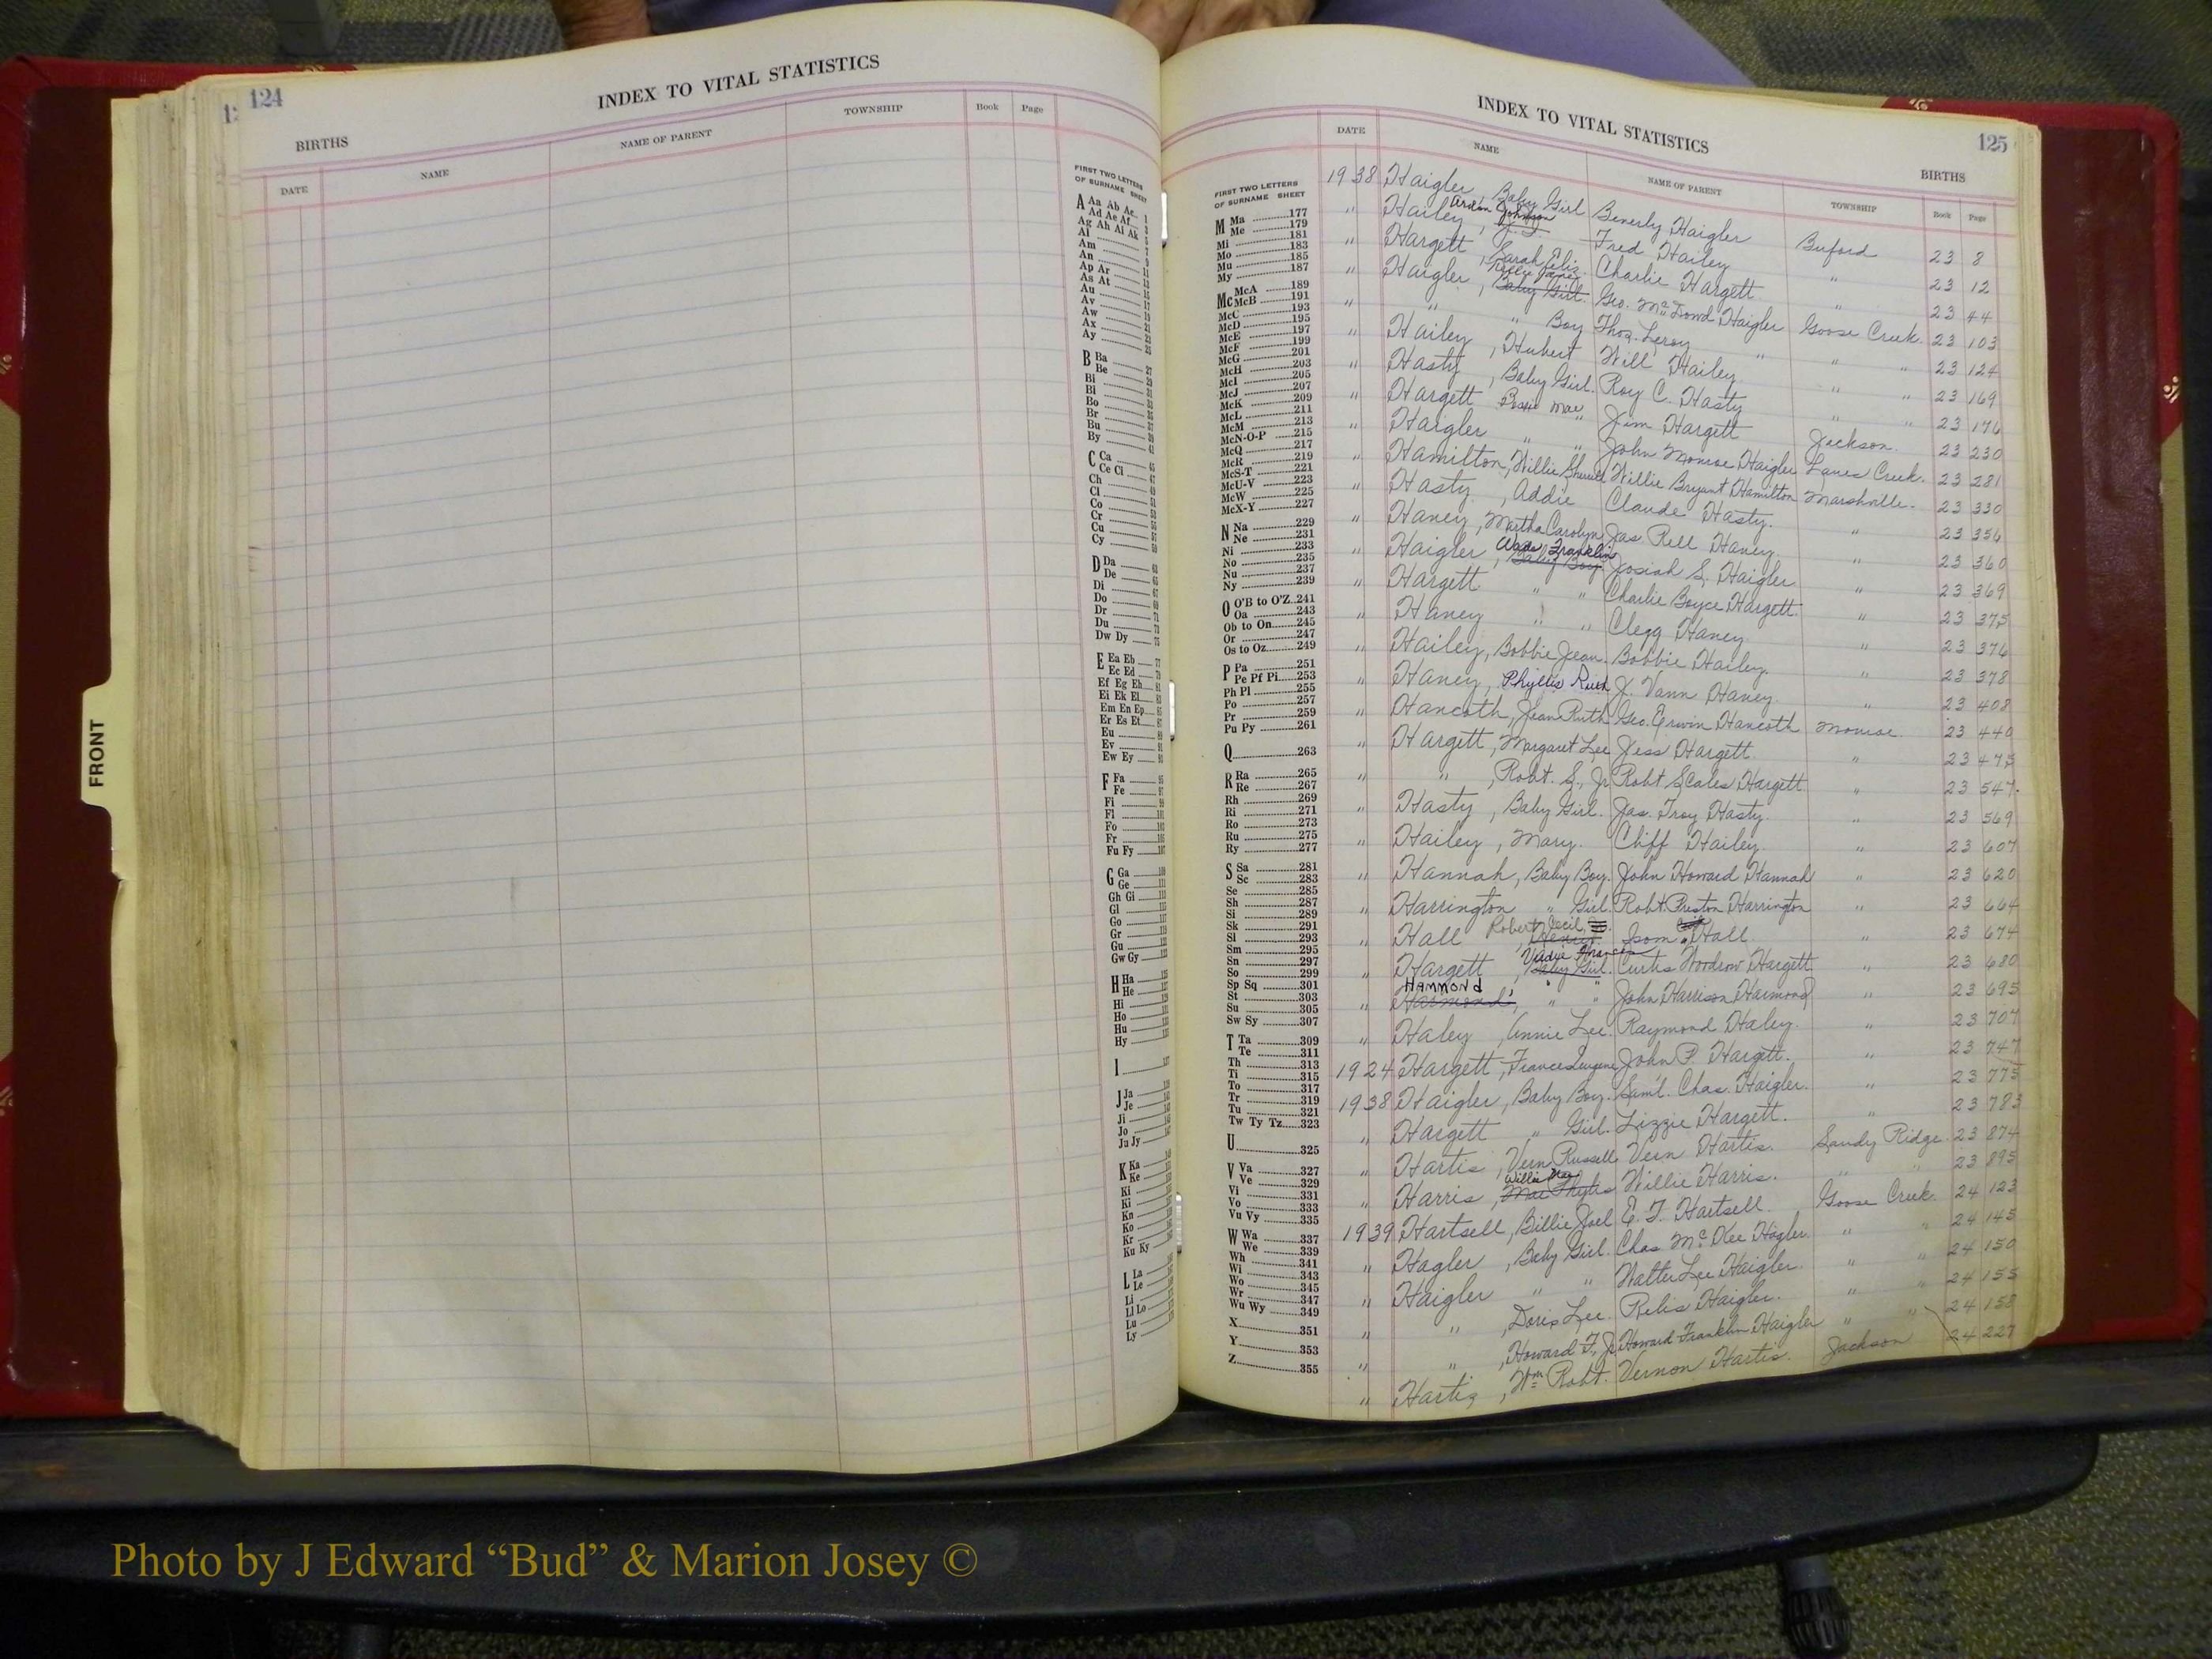 124
INDEX TO VITAL STATISTICS
BIRTHS
DATE NAME NAME OF PARENT TOWNSHIP Book Page
FIRST TWO LETTERS
OF SURNAME SHEET
A Aa Ab Ac
Ad Ae Af
Ag Ah Ai Ak
Al
Am
An
Ap Ar
As At
Au
Av
Aw
Ax
Ay
B Ba
Be
Bi
Bl
Bo
Br
Bu
By
C Ca
Ce Ci
Ch
Cl
Co
Cr
Cu
Cy
D Da
De
Di
Do
Dr
Du
Dw Dy
E Ea Eb
Ec Ed
Ef Eg Eh
Ei Ek El
Em En Ep
Er Es Et
Eu
Ev
Ew Ey
F Fa
Fe
Fi
Fl
Fo
Fr
Fu Fy
G Ga
Ge
Gh Gi
Gl
Go
Gr
Gu
Gw Gy
H Ha
He
Hi
Ho
Hu
Hy
I
J Ja
Je
Ji
Jo
Ju Jy
K Ka
Ke
Ki
Kn
Ko
Kr
Ku Ky
L La
Le
Li
Ll Lo
Lu
Ly
FRONT
INDEX TO VITAL STATISTICS
125
BIRTHS
DATE NAME NAME OF PARENT TOWNSHIP Book Page
FIRST TWO LETTERS
OF SURNAME SHEET
M Ma 177
Me 179
Mi 181
Mo 183
Mu 185
My 187
Mc McA 189
McB 191
McC 193
McD 195
McE 197
McF 199
McG 201
McH 203
McI 205
McJ 207
McK 209
McL 211
McM 213
McN-O-P 215
McQ 217
McR 219
McS-T 221
McU-V 223
McW 225
McX-Y 227
N Na 229
Ne 231
Ni 233
No 235
Nu 237
Ny 239
O O'B to O'Z 241
Oa 243
Ob to On 245
Or 247
Os to Oz 249
P Pa 251
Pe Pf Pi 253
Ph Pl 255
Po 257
Pr 259
Pu Py 261
Q 263
R Ra 265
Re 267
Rh 269
Ri 271
Ro 273
Ru 275
Ry 277
S Sa 281
Sc 283
Se 285
Sh 287
Si 289
Sk 291
Sl 293
Sm 295
Sn 297
So 299
Sp Sq 301
St 303
Su 305
Sw Sy 307
T Ta 309
Te 311
Th 313
Ti 315
To 317
Tr 319
Tu 321
Tw Ty Tz 323
U 325
V Va 327
Ve 329
Vi 331
Vo 333
Vu Vy 335
W Wa 337
We 339
Wh 341
Wi 343
Wo 345
Wr 347
Wu Wy 349
X 351
Y 353
Z 355
1938 Haigler, Baby Girl Beverly Haigler Buford 23 8
" Hailey, Johnson Fred Hailey " 23 12
" Hargett, Sarah Eliz. Charlie Hargett " 23 44
" Haigler, Baby Girl. Geo. McDowd Haigler Goose Creek. 23 103
" " " Boy Thos. Leroy " " " 23 124
" Hailey, Hubert Will Hailey " " 23 169
" Hasty, Baby Girl. Roy C. Hasty " " 23 176
" Hargett Bessie Mae Jim Hargett Jackson. 23 230
" Haigler " " John Monroe Haigler Lanes Creek. 23 281
" Hamilton, Willie Willie Bryant Hamilton Marshville. 23 330
" Hasty, Addie Claude Hasty. " 23 356
" Haney, Martha Carolyn Jas. Rell Haney. " 23 360
" Haigler, Wade Franklin Baby Boy. Josiah S. Haigler " 23 369
" Hargett " " Charlie Boyce Hargett. " 23 375
" Haney " " Clegg Haney. " 23 376
" Hailey, Bobbie Jean. Bobbie Hailey. " 23 378
" Haney, Phyllis Ruth J. Vann Haney " 23 408
" Hancoth, Jean Ruth Geo. Erwin Hancoth Monroe. 23 440
" Hargett, Margaret Lee Jess Hargett. " 23 475
" " , Robt. S., Jr Robt Scales Hargett " 23 547
" Hasty, Baby Girl. Jas. Troy Hasty. " 23 569
" Hailey, Mary. Cliff Hailey. " 23 607
" Hannah, Baby Boy. John Howard Hannah " 23 620
" Harrington " Girl. Robt. Preston Harrington " 23 664
" Hall Robert Cecil Isom Hall " 23 674
" Hargett, Baby Girl. Curtis Woodrow Hargett " 23 680
" HAMMOND, " " John Harrison Harmond " 23 695
" Haley, Annie Lee. Raymond Haley. " 23 707
1924 Hargett, John P. Hargett. " 23 747
1938 Haigler, Baby Boy. Sam'l. Chas. Haigler. " 23 775
" Hargett " Girl. Lizzie Hargett. " 23 783
" Hartis, Vern Russell Vern Hartis. Sandy Ridge. 23 874
" Harris, Willie Mae Willie Harris. " " 23 895
1939 Hartsell, Billie Joel E. T. Hartsell. Goose Creek. 24 123
" Hagler, Baby Girl. Chas. McKee Hagler. " " 24 145
" Haigler " " Walter Lee Haigler. " " 24 150
" " , Doris Lee. Haigler. " " 24 155
" " , Howard F., Jr Howard Franklin Haigler " " 24 158
" Hartis, Wm Robt. Vernon Hartis. Jackson 24 227
Photo by J Edward “Bud” & Marion Josey ©